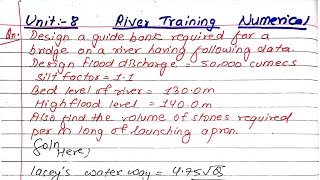 Unit:-8 River Training Numerical
Qn: Design a guide bank required for a
bridge on a river having following data.
Design flood discharge = 50,000 cumecs
Silt factor = 1.1
Bed level of river = 130.0m
High flood level = 140.0m
Also find the volume of stones required
per m long of launching apron.
Soln
Here,
Lacey's water way = 4.75√Q